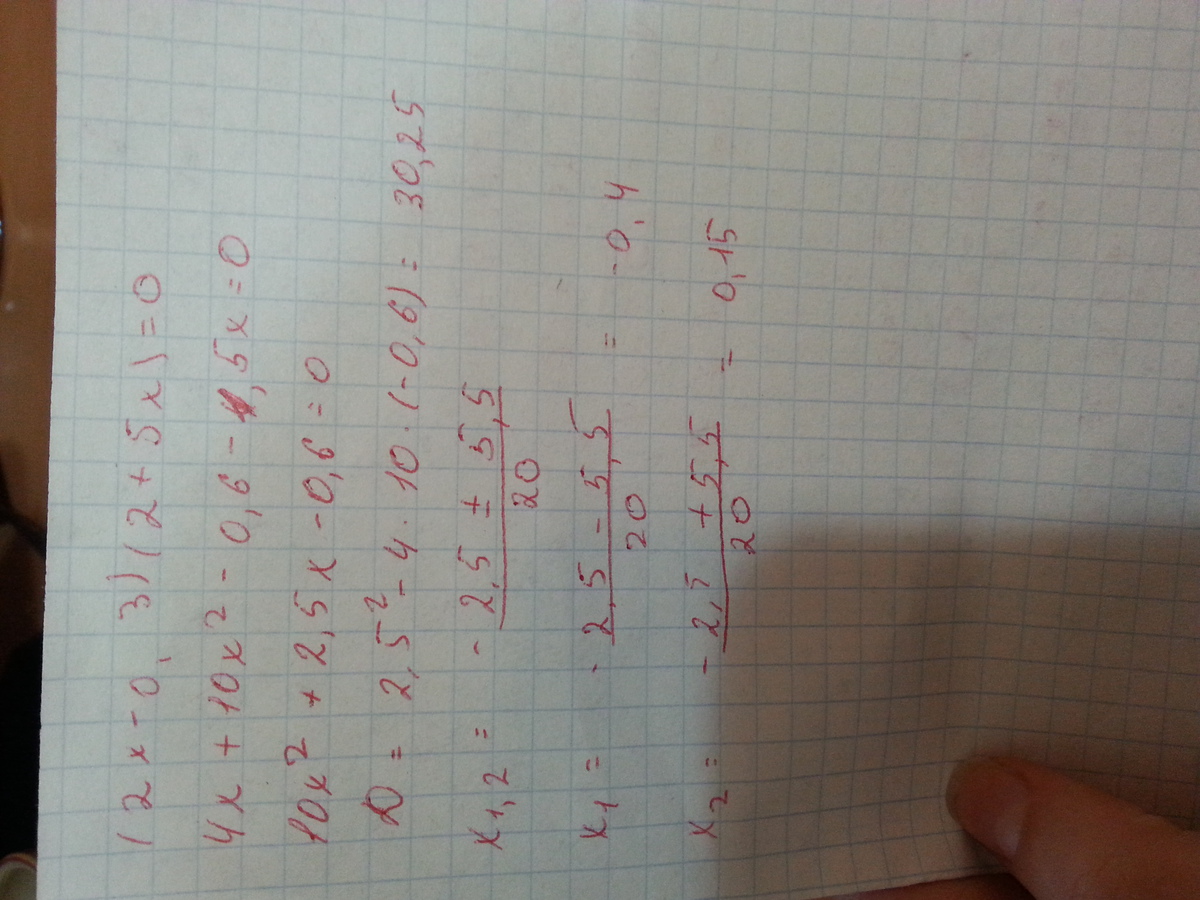 (2x-0,3)(2+5x)=0
4x+10x²-0,6-1,5x=0
10x²+2,5x-0,6=0
D = 2,5²-4·10·(-0,6)= 30,25
x₁,₂ = -2,5 ± 5,5 / 20
x₁ = -2,5 - 5,5 / 20 = -0,4
x₂ = -2,5 + 5,5 / 20 = 0,15